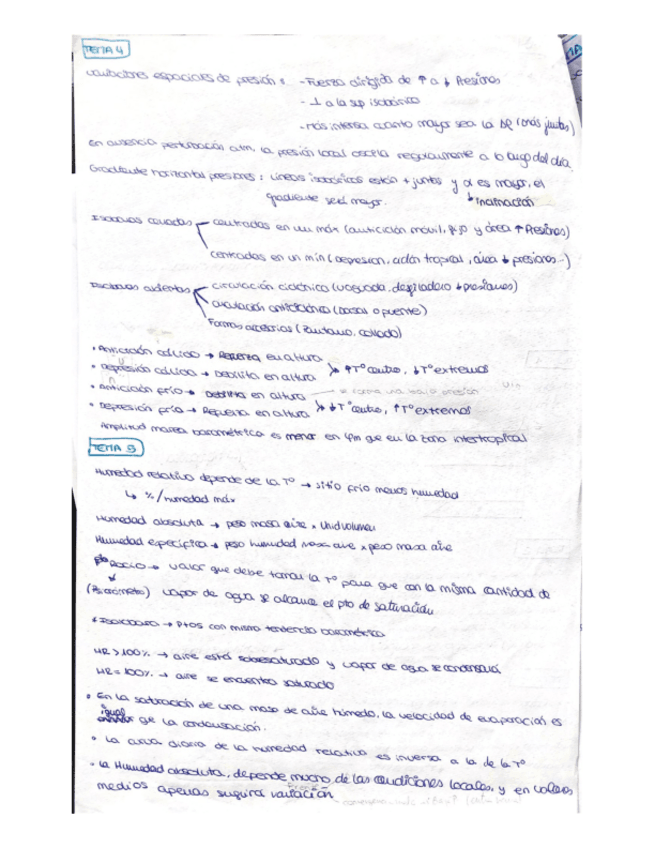 TEMA 4
Variaciones espaciales de presión: - Fuerza dirigida de ↑ a ↓ Presiones
- ⊥ a la sup isobárica
- más intensa cuanto mayor sea la ΔP (más juntas)
En ausencia perturbación atm, la presión local oscila regularmente a lo largo del día.
Gradiente horizontal presiones: Líneas isobáricas están + juntas y α es mayor, el
gradiente será mayor. ↳ Inclinación
Isobaras cerradas centradas en un máx (anticiclón móvil, fijo y área ↑ Presiones)
centradas en un mín (depresión, ciclón tropical, área ↓ presiones...)
Isobaras abiertas circulación ciclónica (vaguada, desfiladero ↓ presiones)
circulación anticiclónica (dorsal o puente)
Formas accesorias (Pantano, collado)
• Anticiclón cálido → Refuerza en altura
• Depresión cálida → Debilita en altura ↑ Tº centro, ↓ Tº extremos
• Anticiclón frío → Debilita en altura
• Depresión fría → Refuerza en altura ↓ Tº centro, ↑ Tº extremos
Amplitud marea barométrica es menor en que en la zona intertropical
TEMA 5
Humedad relativa depende de la Tº → sitio frío menos humedad
↳ %/humedad máx
Humedad absoluta → peso masa aire x Unid volumen
Humedad específica → peso humedad masa aire x peso masa aire
Pto Rocío → valor que debe tomar la Tº para que con la misma cantidad de
(Psicrómetro) vapor de agua se alcance el pto de saturación
* → Ptos con misma tendencia barométrica
HR > 100% → aire está sobresaturado y vapor de agua se condensará
HR = 100% → aire se encuentra saturado
• En la saturación de una masa de aire húmedo, la velocidad de evaporación es
igual que la condensación.
• La curva diaria de la humedad relativa es inversa a la de la Tº
• La Humedad absoluta, depende mucho de las condiciones locales, y en valores
medios apenas sufrirá variación